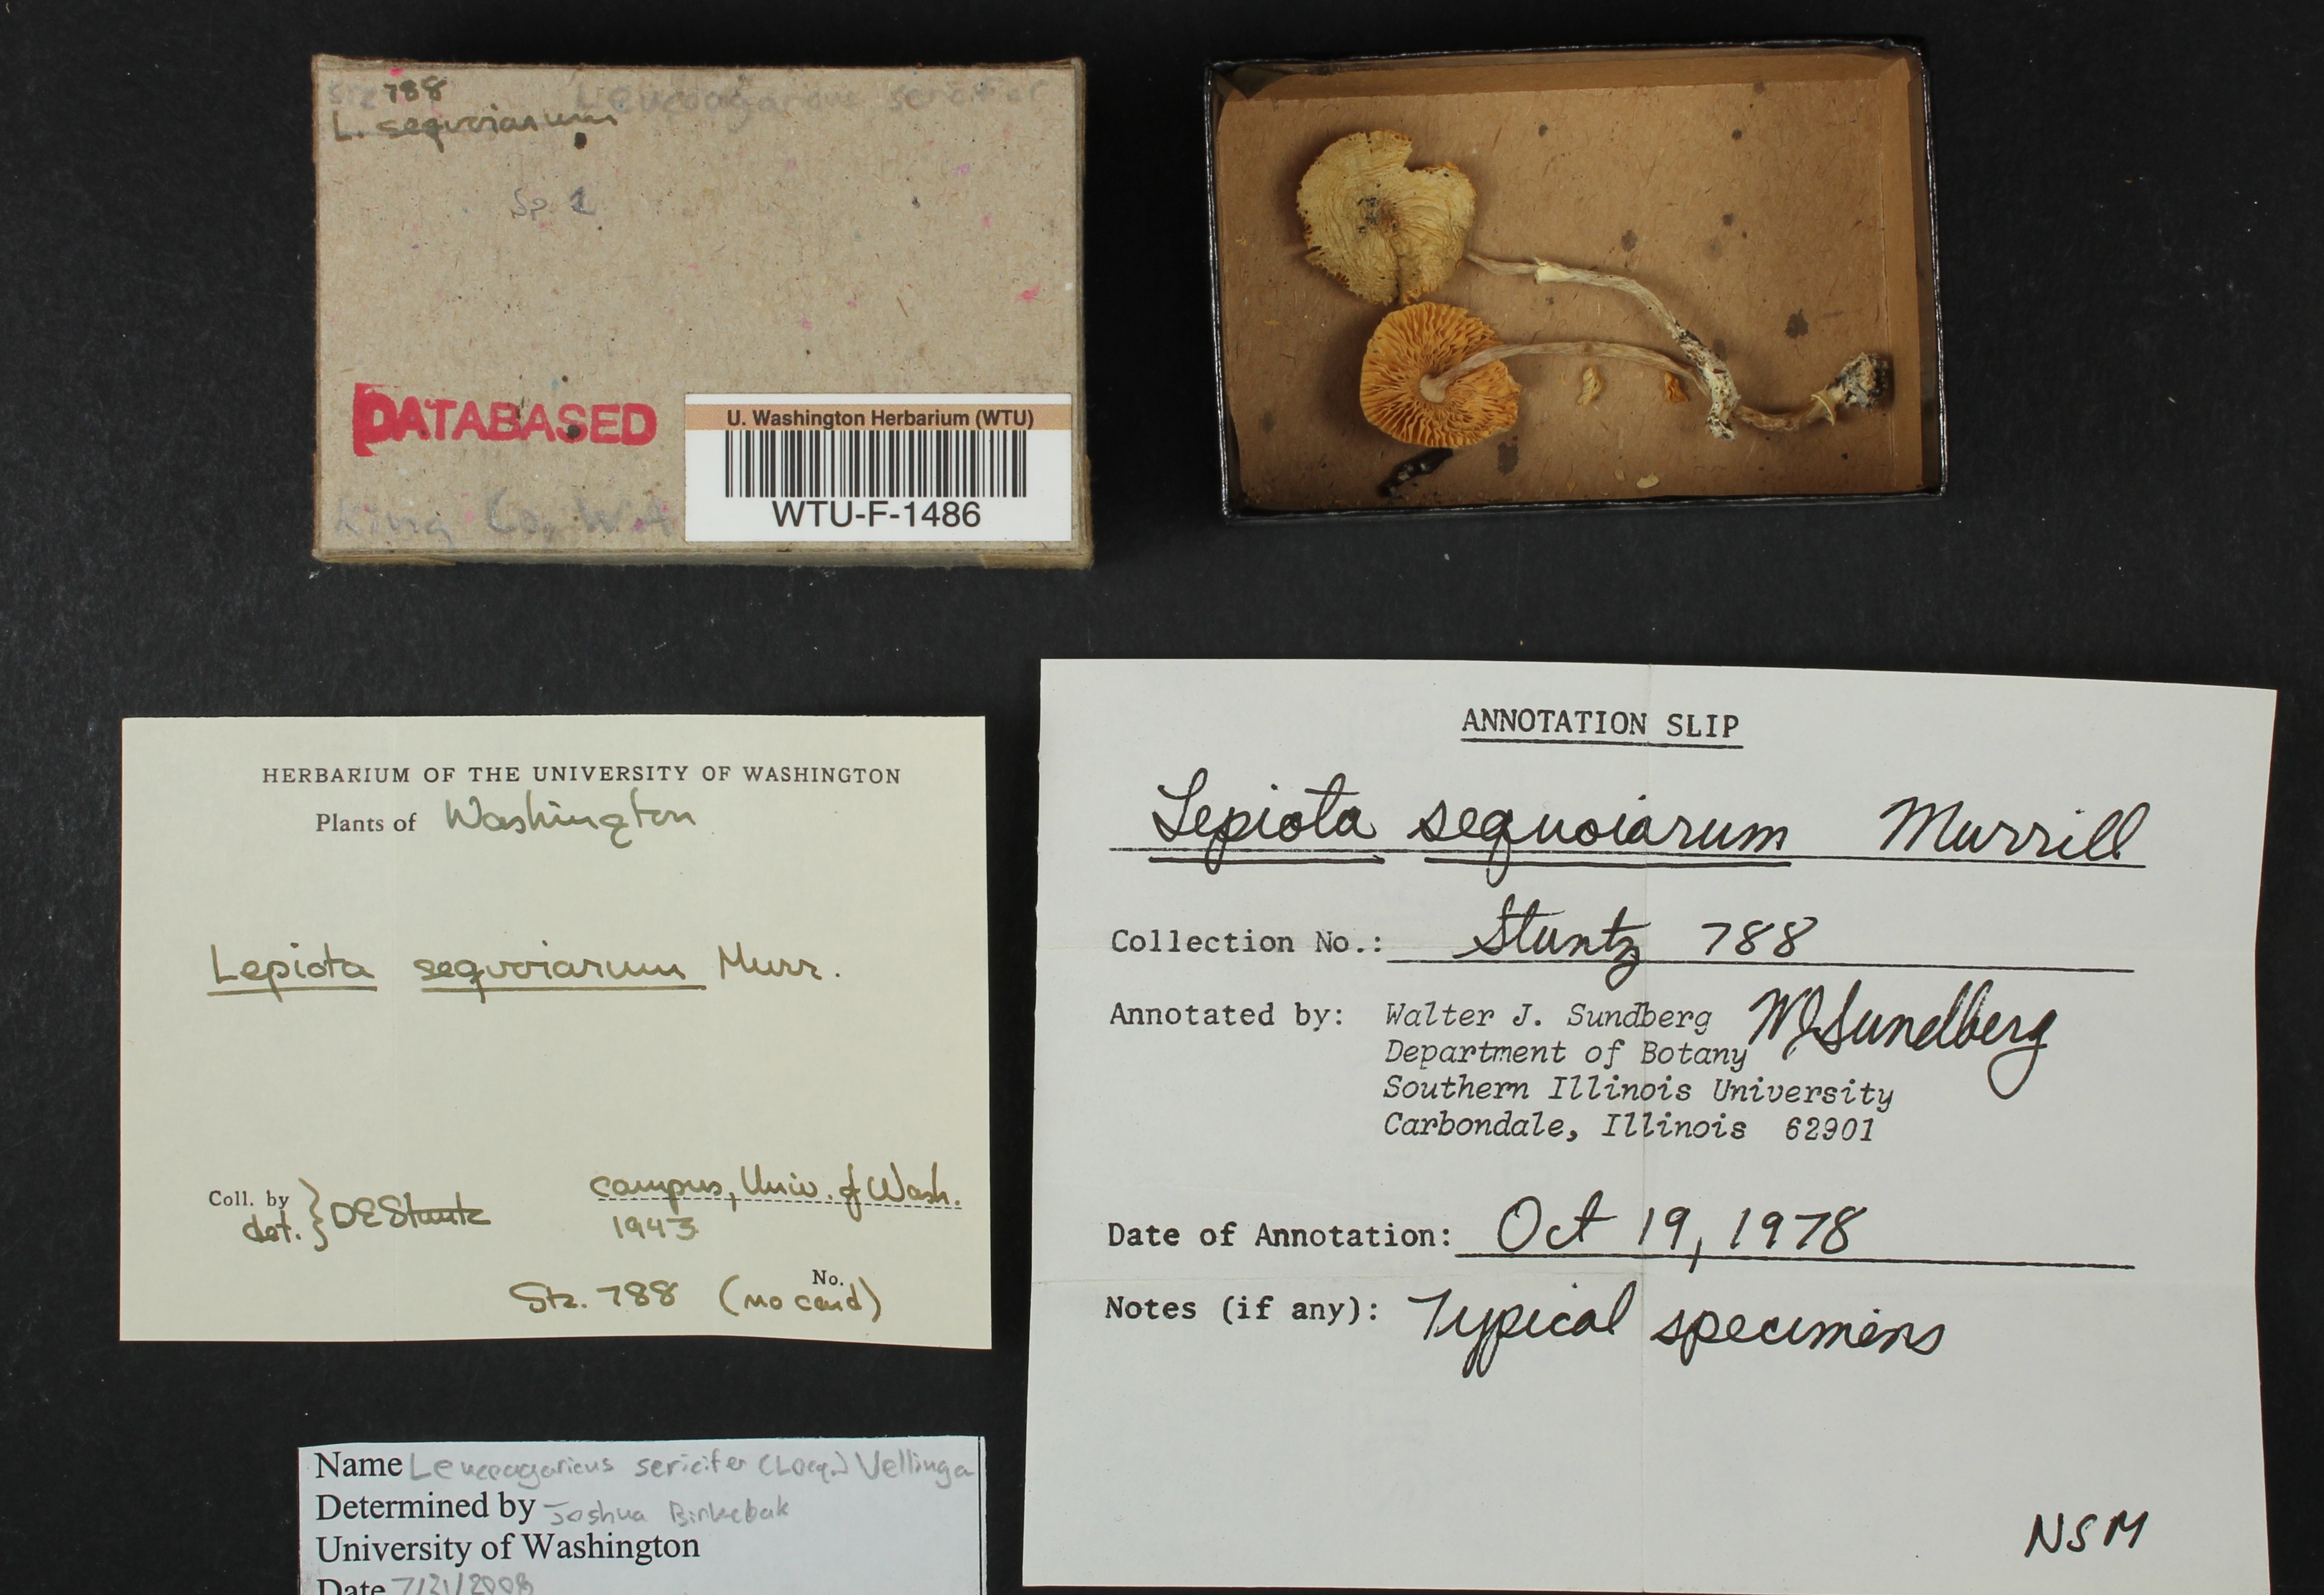 Stz 788
Leucoagaricus sericifer
L. sequoiarum
Sp. 1
DATABASED
King Co, WA
U. Washington Herbarium (WTU)
WTU-F-1486
HERBARIUM OF THE UNIVERSITY OF WASHINGTON
Plants of Washington
Lepiota sequoiarum Murr.
Coll. by
det. } DE Stuntz
campus, Univ. of Wash.
1943
No.
Stz. 788 (no card)
ANNOTATION SLIP
Lepiota sequoiarum Murrill
Collection No.: Stuntz 788
Annotated by: Walter J. Sundberg WJSundberg
Department of Botany
Southern Illinois University
Carbondale, Illinois 62901
Date of Annotation: Oct 19, 1978
Notes (if any): Typical specimens
NSM
Name Leucoagaricus sericifer (Locq.) Vellinga
Determined by Joshua Birkebak
University of Washington
Date 7/21/2008